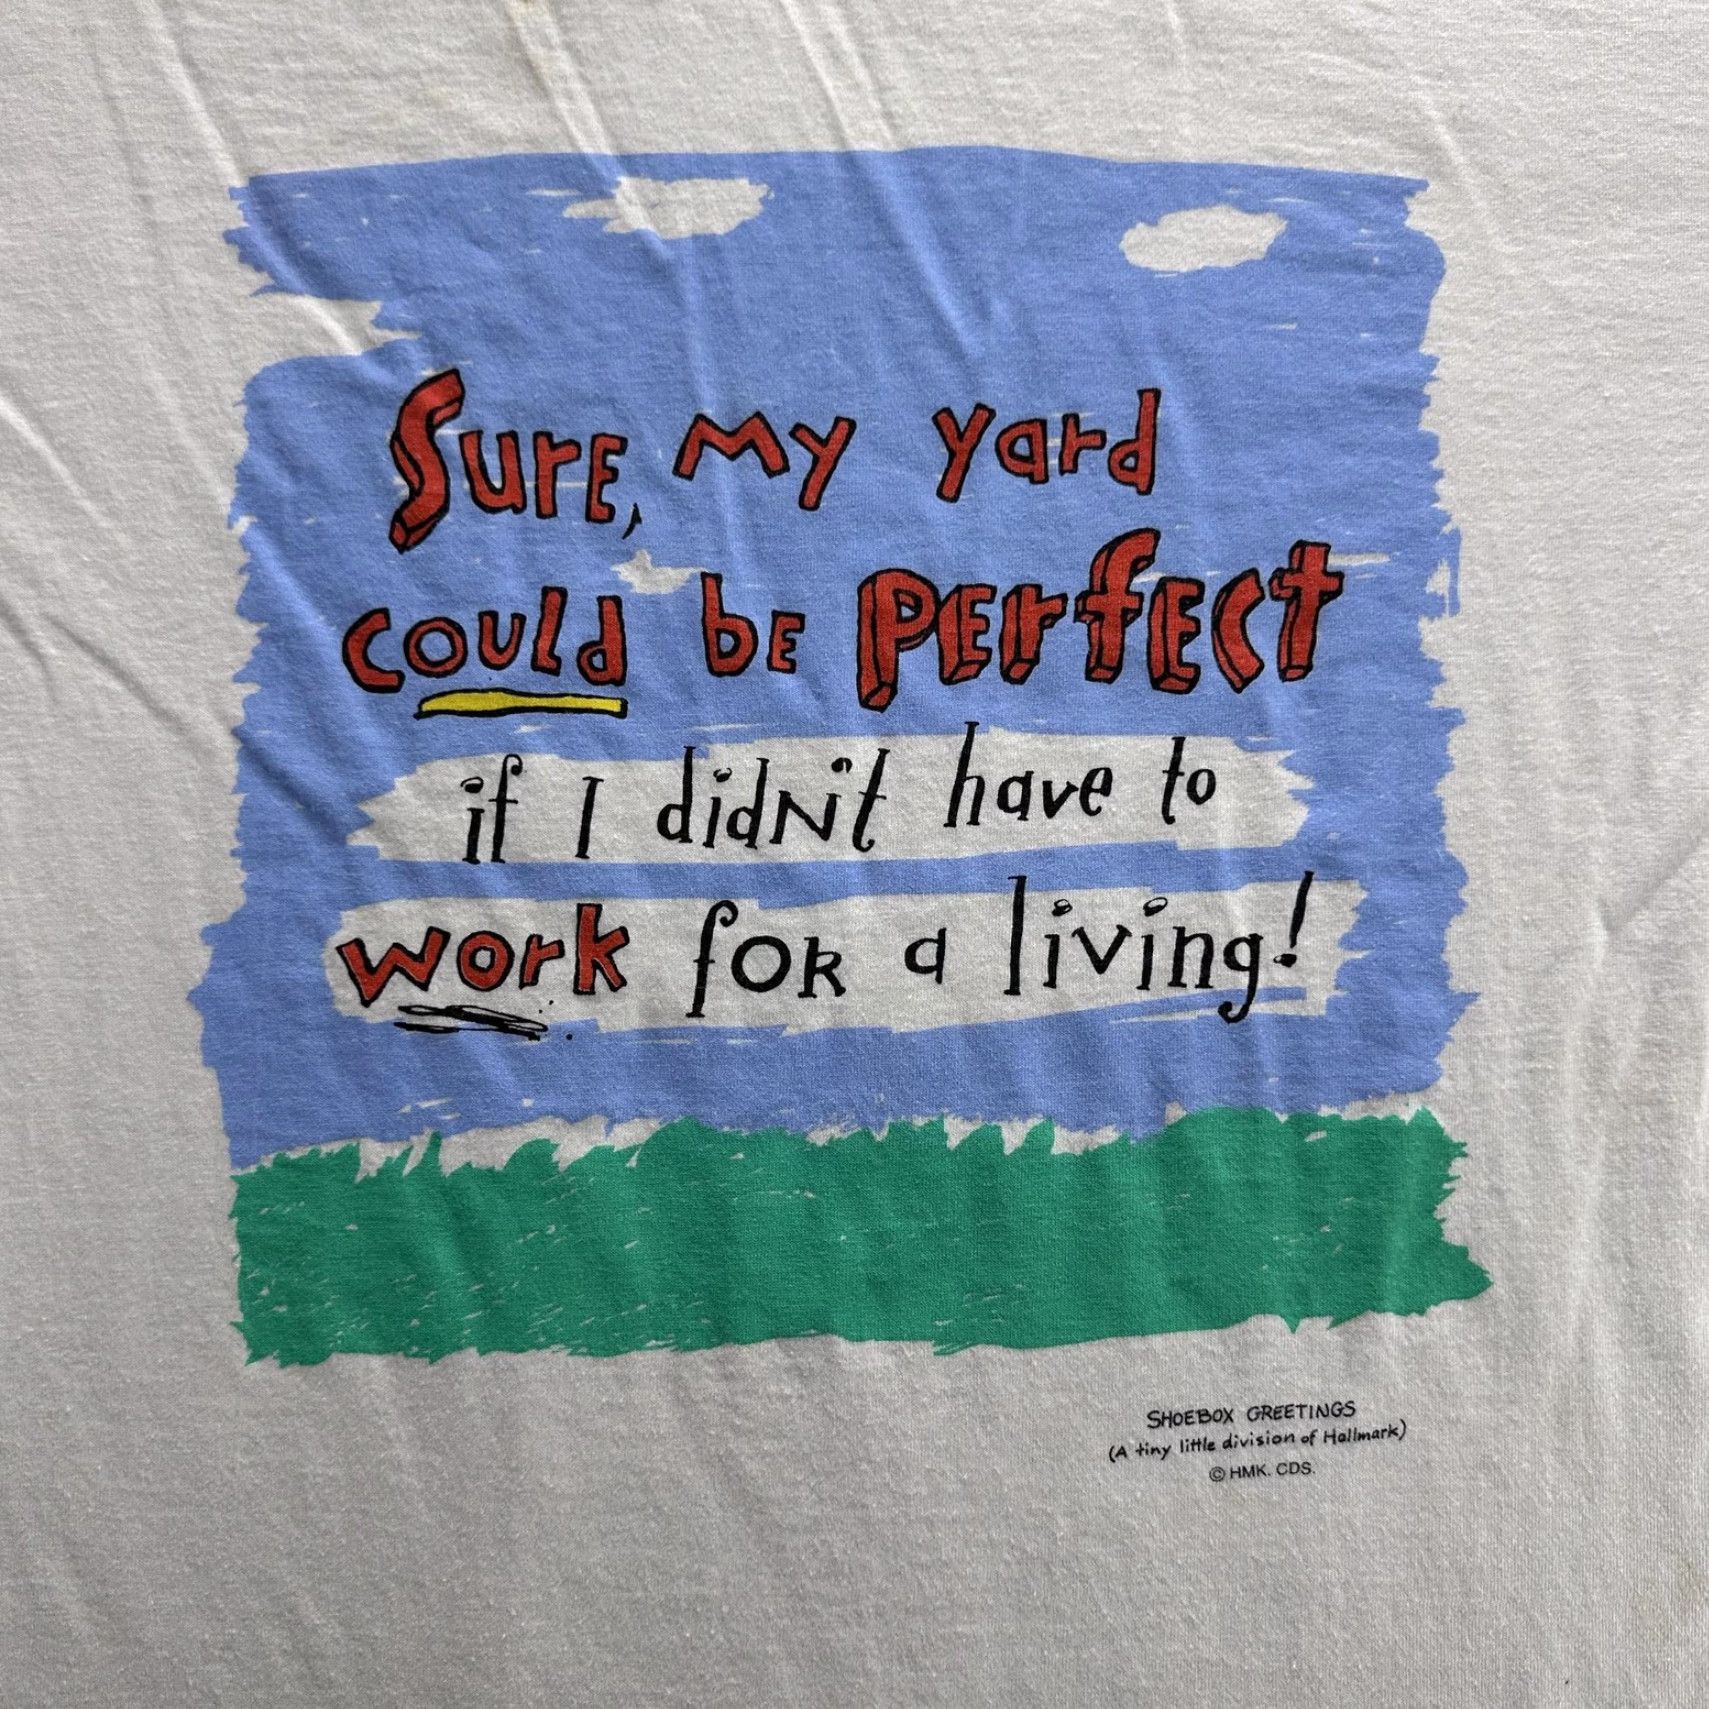 Sure, my yard
could be perfect
if I didn't have to
work for a living!
SHOEBOX GREETINGS
(A tiny little division of Hallmark)
© HMK. CDS.